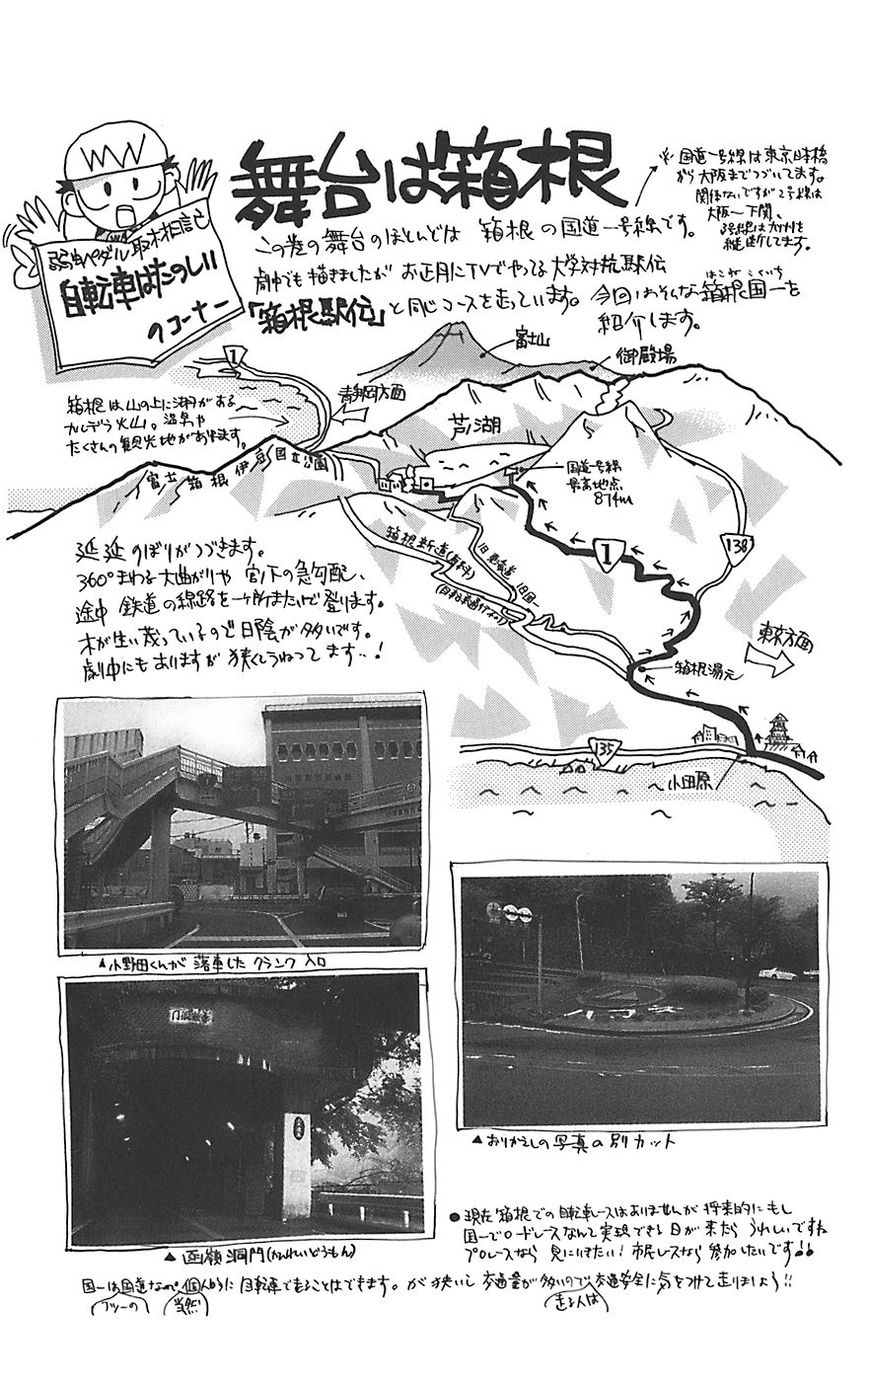 弱虫ペダル取材雑記
自転車はたのしい
のコーナー
舞台は箱根
※国道一号線は東京日本橋
から大阪までつづいてます。
関係ないですが2号線は
大阪〜下関、
3号線は九州を
縦断してます。
この巻の舞台のほとんどは 箱根の国道一号線です。
劇中でも描きましたが お正月にTVでやってる大学対抗駅伝
「箱根駅伝」と同じコースを走っています。今回はそんな箱根国一を
はこねこくいち
紹介します。
1
富士山
御殿場
静岡方面
箱根は山の上に湖がある
カルデラ火山。温泉や
たくさんの観光地があります。
芦ノ湖
富士箱根伊豆国立公園
国道一号線
最高地点
874m
箱根新道(有料)
旧東海道
旧国一
1
138
延延のぼりがつづきます。
360°まわる大曲がりや 宮ノ下の急勾配、
途中 鉄道の線路を一ヶ所またいで登ります。
木が生い茂っているので日陰が多いです。
劇中にもありますが狭くてうねってます…!
東京方面
箱根湯元
135
小田原
▲小野田くんが 落車した クランク入口
▲おりかえしの写真の別カット
▲函嶺洞門(かんれいどうもん)
●現在 箱根での自転車レースはありませんが 将来的にもし
国一でロードレースなんて実現できる日が来たら うれしいですね
プロレースなら 見にいきたい! 市民レースなら 参加したいです!!
国一は国道なので、個人的に自転車で走ることはできます。が 狭いし 交通量が多いので、交通安全に気をつけて走りましょう!!
フツーの
当然
走る人は